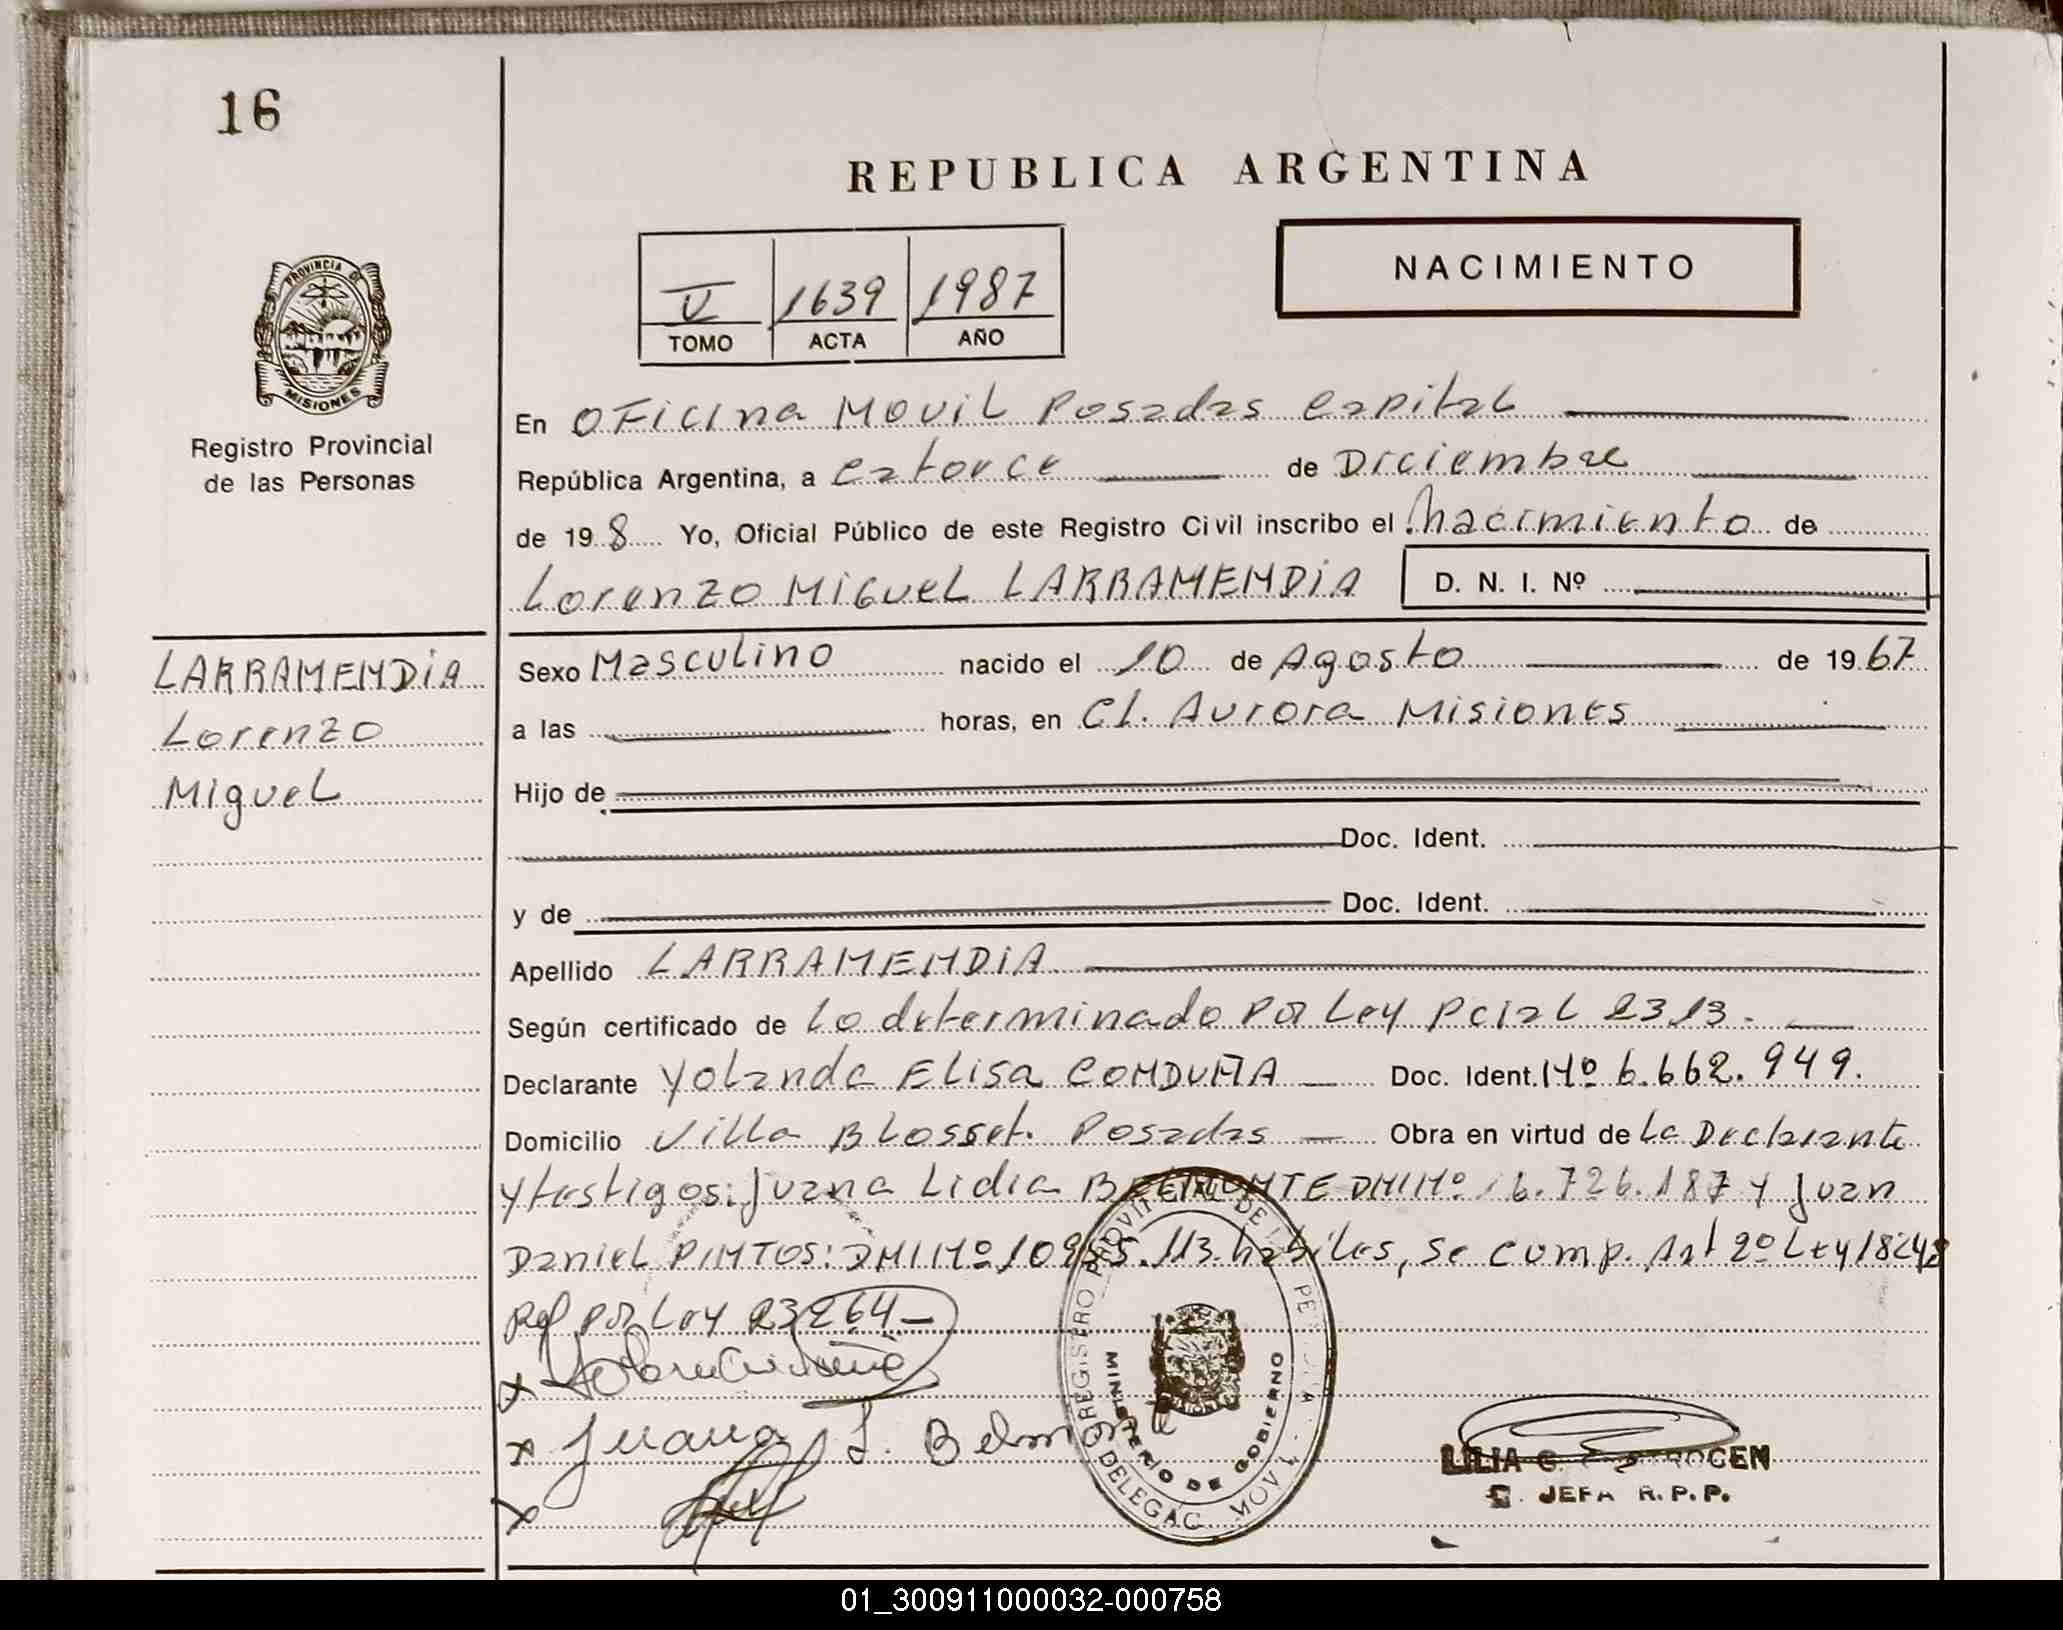 16
REPUBLICA ARGENTINA
V 1639 1987
TOMO ACTA AÑO
NACIMIENTO
PROVINCIA DE MISIONES
Registro Provincial
de las Personas
En Oficina Movil Posadas Capital
República Argentina, a catorce de Diciembre
de 19 8 Yo, Oficial Público de este Registro Civil inscribo el nacimiento de
Lorenzo Miguel LARRAMENDIA D. N. I. Nº
LARRAMENDIA
Lorenzo
Miguel
Sexo Masculino nacido el 10 de Agosto de 1967
a las horas, en Cl. Aurora Misiones
Hijo de
Doc. Ident.
y de Doc. Ident.
Apellido LARRAMENDIA
Según certificado de lo determinado por Ley Pcial 2313.
Declarante Yolanda Elisa CONDUÑA Doc. Ident. Nº 6.662.949.
Domicilio Villa Blosset. Posadas Obra en virtud de La Declarante
y testigos: Juana Lidia DNI Nº 6.726.187 y Juan
Daniel PINTOS: DNI Nº 113. habiles, se comp. Art 2º Ley 18248
Ref por Ley 23264
x
x Juana L.
x
REGISTRO PROVINCIAL DE LAS PERSONAS
MINISTERIO DE GOBIERNO
DELEGAC. MOVIL
LILIA
JEFA R.P.P.
01_300911000032-000758